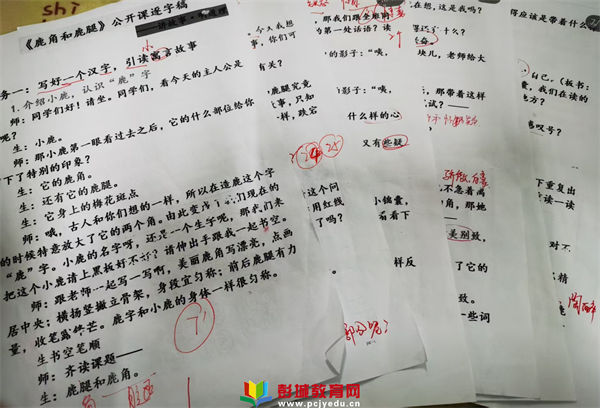 《鹿角和鹿腿》公开课逐字稿
务一：写好一个汉字，引读寓言故事
小
1.介绍小鹿，认识“鹿”字
师：同学们好！请坐。同学们，看今天的主人公是
呢？
生：小鹿。
师：那小鹿第一眼看过去之后，它的什么部位给你
下了特别的印象？
生：它的鹿角。
生：还有它的鹿腿。
生：它身上的梅花斑点
师：哦，古人和你们想的一样，所以在造鹿这个字
的时候特意放大了它的两个角。由此变成了我们现在的
“鹿”字。小鹿的名字呀，还是一个生字呢，那我们来
把这个小鹿请上黑板好不好？请伸出手跟我一起书空。
师：跟老师一起写一写啊，美丽鹿角写漂亮，点画
居中央；横扬竖撇立骨架，身段宜匀称；前后鹿腿有力
量，收笔露锋芒。鹿字和小鹿的身体一样很匀称。
生书空笔顺
师：齐读课题——
生：鹿腿和鹿角。
shi
有关？
鹿腿竞
事，只知
一样，跌宕
24
25
这个问
用红线
了吗？
那我们跟
的影子：“咦，
影子：“咦，
什么样的心
又有些疑
小锦囊，
看看下
样反
在想，这是
块儿，老师给大
那，那带着这样
试？——
骄傲、自豪
不急着离
角，那她
美别致，
了它的
致。
一些词
得应该是带着什么
自己，（板书：
我们在读的
叹号？
下重复出
读一读
对不
精
彭城教育网
www.pcjyedu.cn